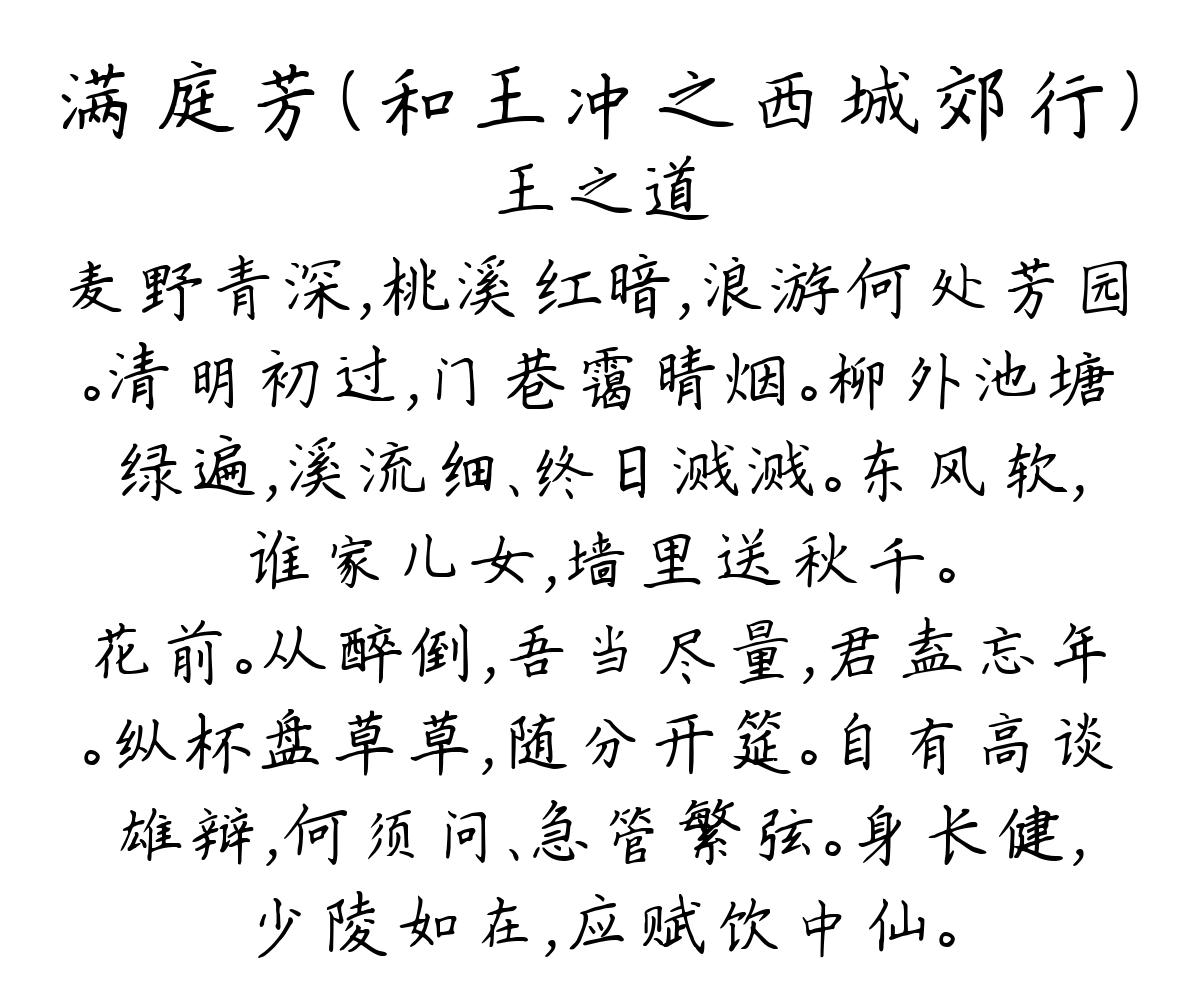 满庭芳(和王冲之西城郊行)
王之道
麦野青深,桃溪红暗,浪游何处芳园
。清明初过,门巷霭晴烟。柳外池塘
绿遍,溪流细、终日溅溅。东风软,
谁家儿女,墙里送秋千。
花前。从醉倒,吾当尽量,君盍忘年
。纵杯盘草草,随分开筵。自有高谈
雄辩,何须问、急管繁弦。身长健,
少陵如在,应赋饮中仙。